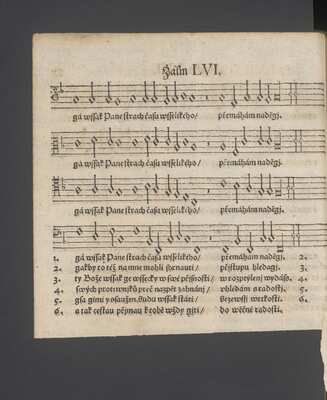 Žalm LVI.
gá wssak Pane strach času wsselikého/ přemáhám naděgj.
gá wssak Pane strach času wsselikého/ přemáhám naděgj.
gá wssak Pane strach času wsselikého/ přemáhám naděgj.
1. gá wssak Pane strach času wsselikého/ přemáhám naděgj. 2.
2. gakby to též na mne mohli / přjstupu hledagj. 3.
3. ty Bože wssak ge wssecky w swé přjsnosti/ w rozptýlenj wydáss. 4.
4. swých protiwnjků preč nazpět zahnánj/ vhledám s radostj. 5.
5. gsa ginu y osaužen. budu wssak státi/ bezewssj wrtkosti. 6.
6. a tak cestau přjmau k tobě wždy gjti/ do wěčné radosti.